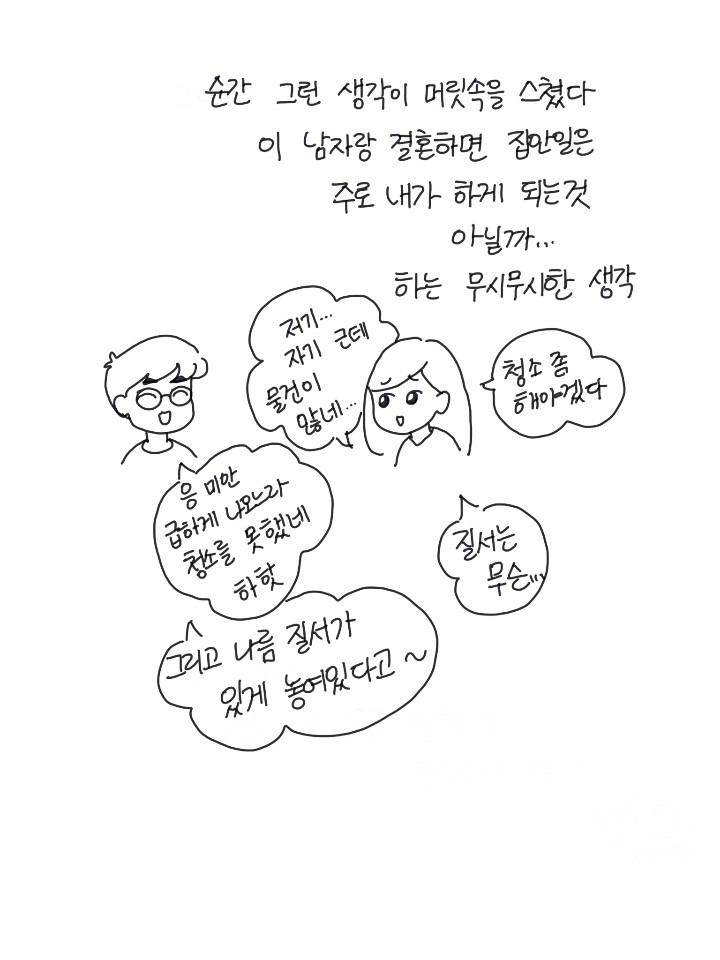 순간 그런 생각이 머릿속을 스쳤다
이 남자랑 결혼하면 집안일은
주로 내가 하게 되는것
아닐까...
하는 무시무시한 생각
저기...
자기 근데
물건이
많네...
청소 좀
해야겠다
응 미안
급하게 나오느라
청소를 못했네
하핫
그리고 나름 질서가
있게 놓여있다고 ~
질서는
무슨...